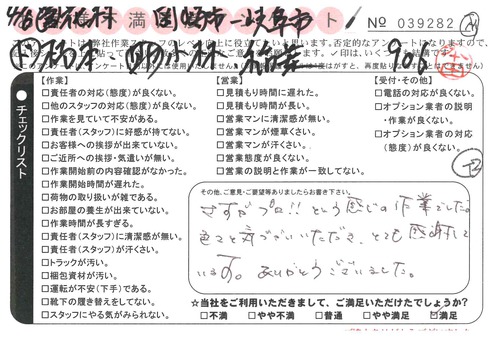 満 ト
岡崎市→岐阜市
№ 039282
小林
チェックリスト
【作業】
□責任者の対応(態度)が良くない。
□他のスタッフの対応(態度)が良くない。
□作業を見ていて不安がある。
□責任者(スタッフ)に好感が持てない。
□お客様への挨拶が出来ていない。
□ご近所への挨拶・気遣いが無い。
□作業開始前の内容確認がなかった。
□作業開始時間が遅れた。
□荷物の取り扱いが雑である。
□お部屋の養生が出来ていない。
□作業時間が長すぎる。
□責任者(スタッフ)に清潔感が無い。
□責任者(スタッフ)が汗くさい。
□トラックが汚い。
□梱包資材が汚い。
□運転が不安(下手)である。
□靴下の履き替えをしてない。
□スタッフにやる気がみられない。
【営業】
□見積もり時間に遅れた。
□見積もり時間が長い。
□営業マンに清潔感が無い。
□営業マンが煙草くさい。
□営業マンが汗くさい。
□営業態度が良くない。
□営業の説明と作業が一致してない。
【受付・その他】
□電話の対応が良くない。
□オプション業者の説明
・作業が良くない。
□オプション業者の対応
(態度)が良くない。
その他、ご意見・ご要望等ありましたらお書き下さい。
さすがプロ!!という感じの作業でした。
色々と気づかいいただき、とても感謝して
います。ありがとうございました。
☆当社をご利用いただきまして、ご満足いただけたでしょうか?
□不満 □やや不満 □普通 □やや満足 ☑満足